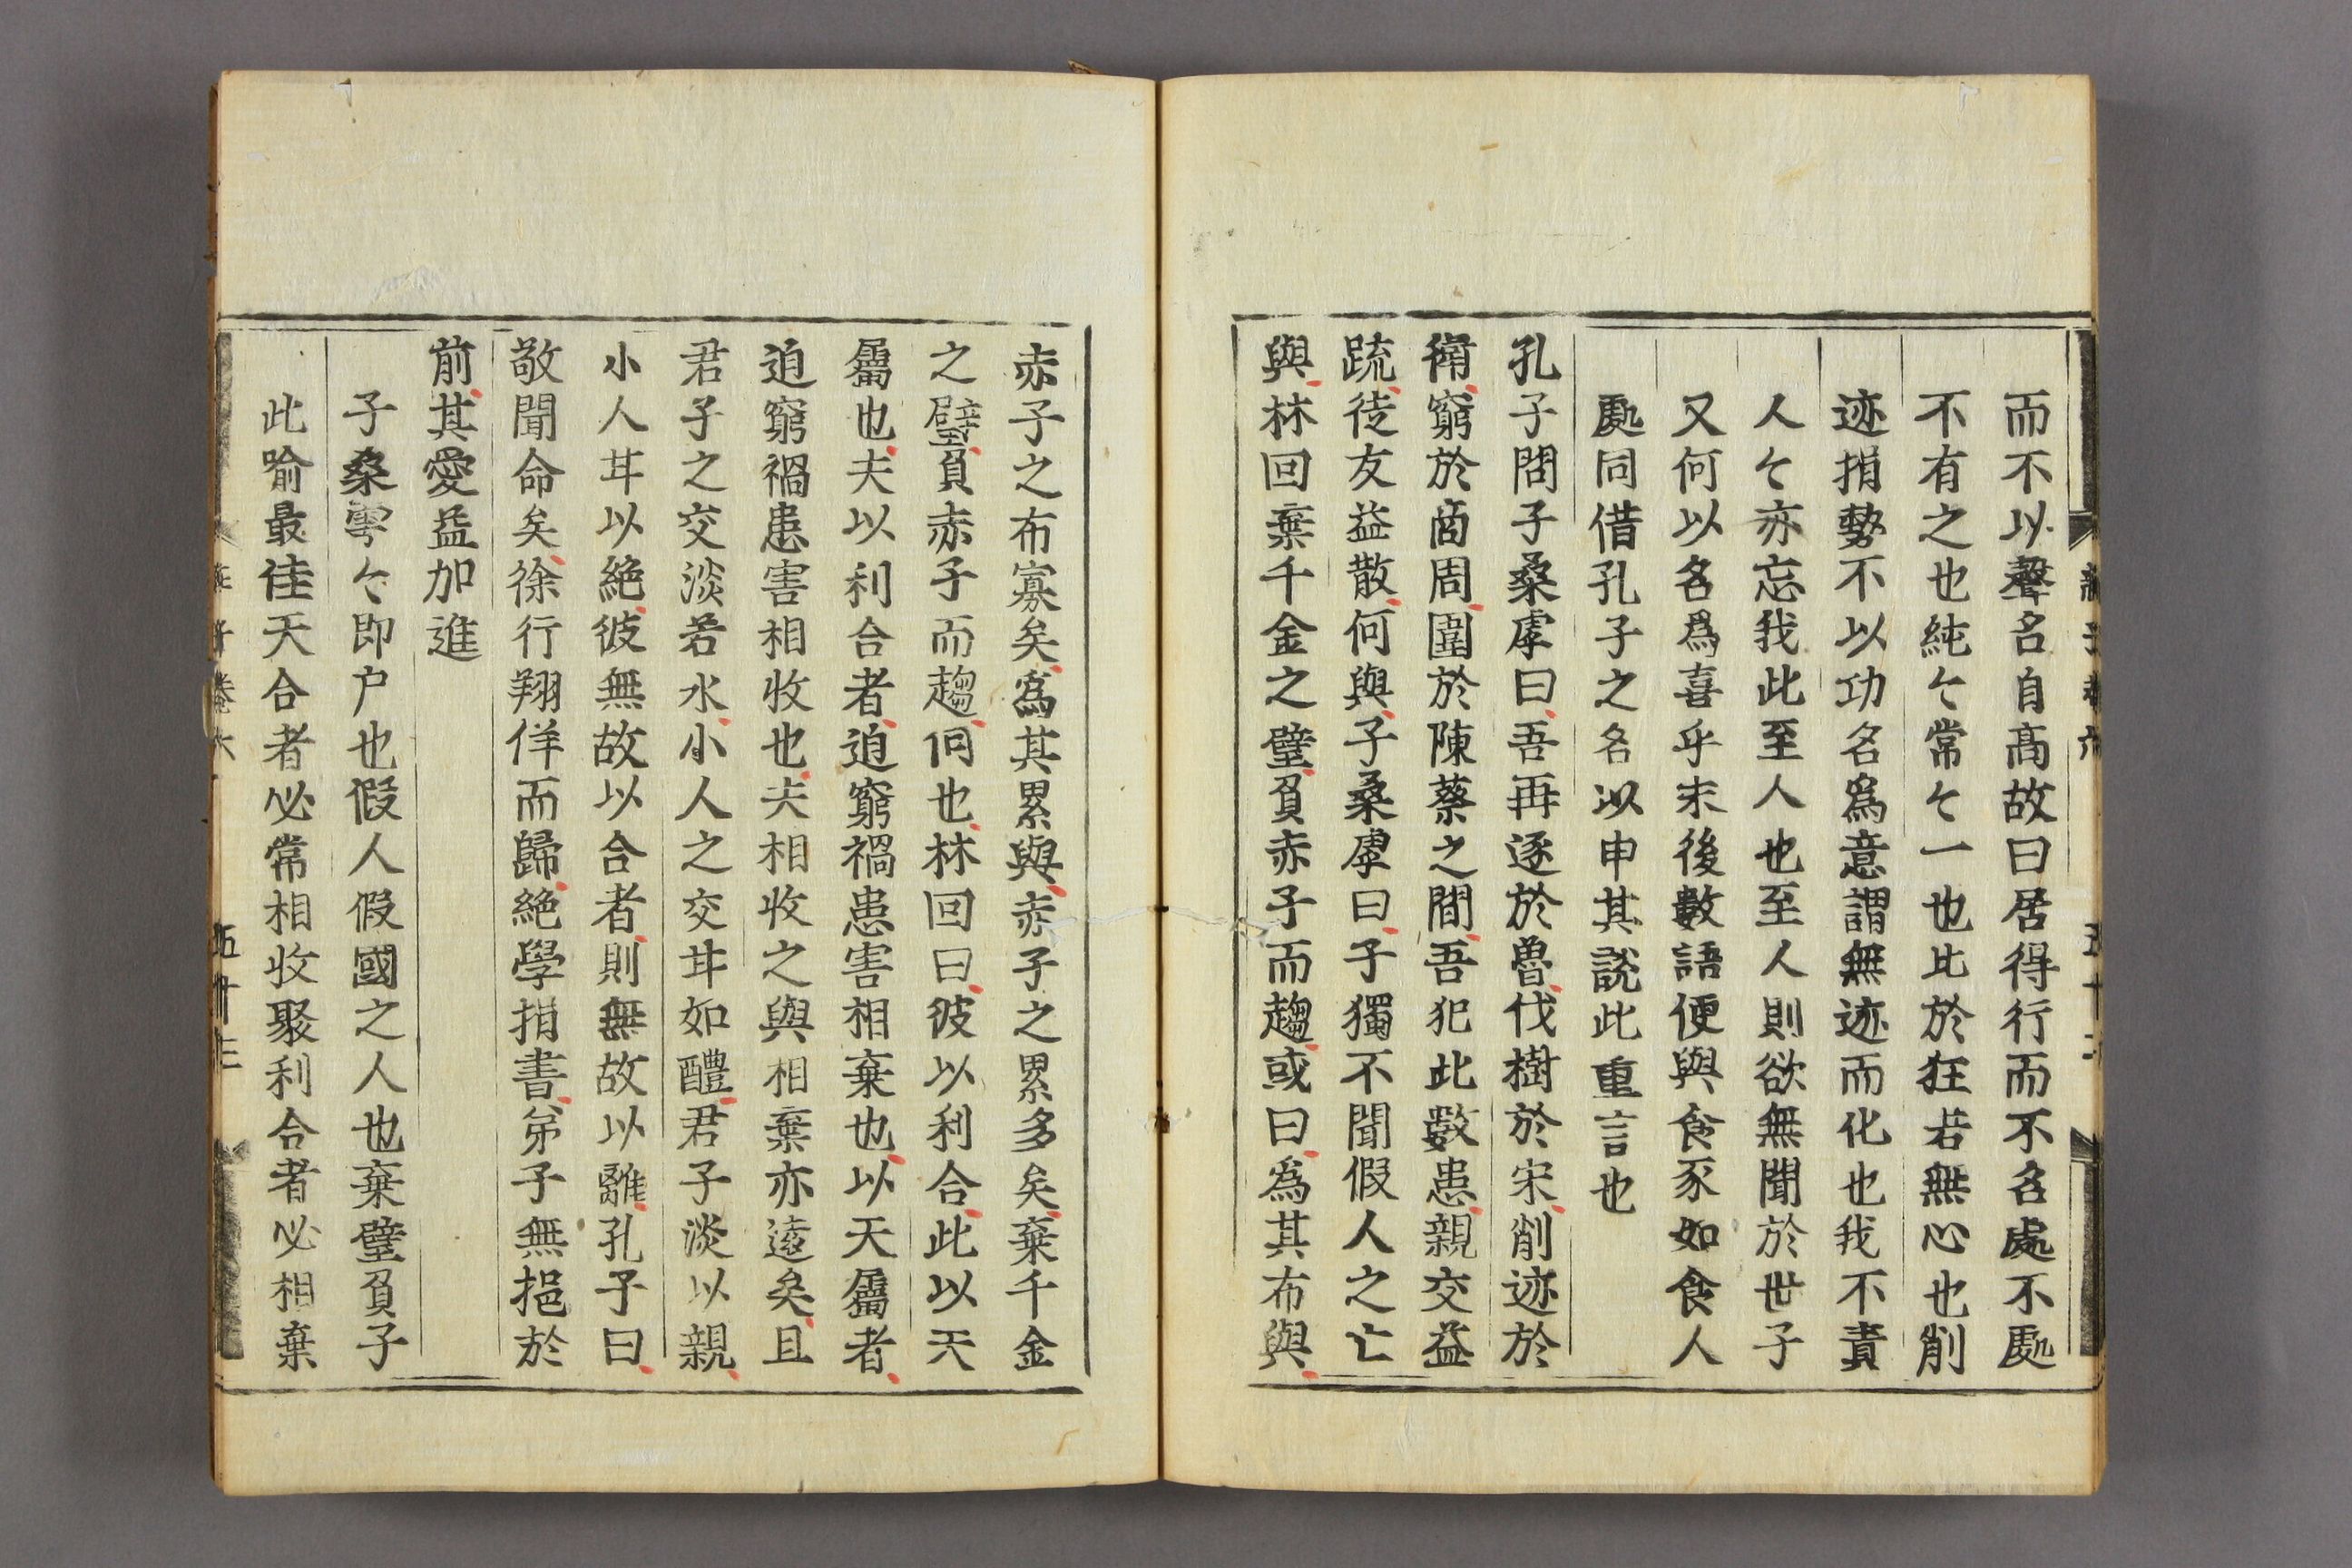 而不以聲名自高故曰居得行而不名處不處
不有之也純〻常〻一也比於狂若無心也削
迹捐勢不以功名爲意謂無迹而化也我不責
人〻亦忘我此至人也至人則欲無聞於世子
又何以名爲喜乎末後數語便與食豕如食人
處同借孔子之名以申其說此重言也
孔子問子桑雽曰吾再逐於魯伐樹於宋削迹於
衛窮於商周圍於陳蔡之間吾犯此數患親交益
疏徒友益散何與子桑雽曰子獨不聞假人之亡
與林回棄千金之璧負赤子而趨或曰爲其布與
赤子之布寡矣爲其累與赤子之累多矣棄千金
之璧負赤子而趨何也林回曰彼以利合此以天
屬也夫以利合者迫窮禍患害相棄也以天屬者
迫窮禍患害相收也夫相收之與相棄亦遠矣且
君子之交淡若水小人之交甘如醴君子淡以親
小人甘以絕彼無故以合者則無故以離孔子曰
敬聞命矣徐行翔佯而歸絕學捐書弟子無挹於
前其愛益加進
子桑雽〻即户也假人假國之人也棄璧負子
此喻最佳天合者必常相收聚利合者必相棄
子卷六
五十三